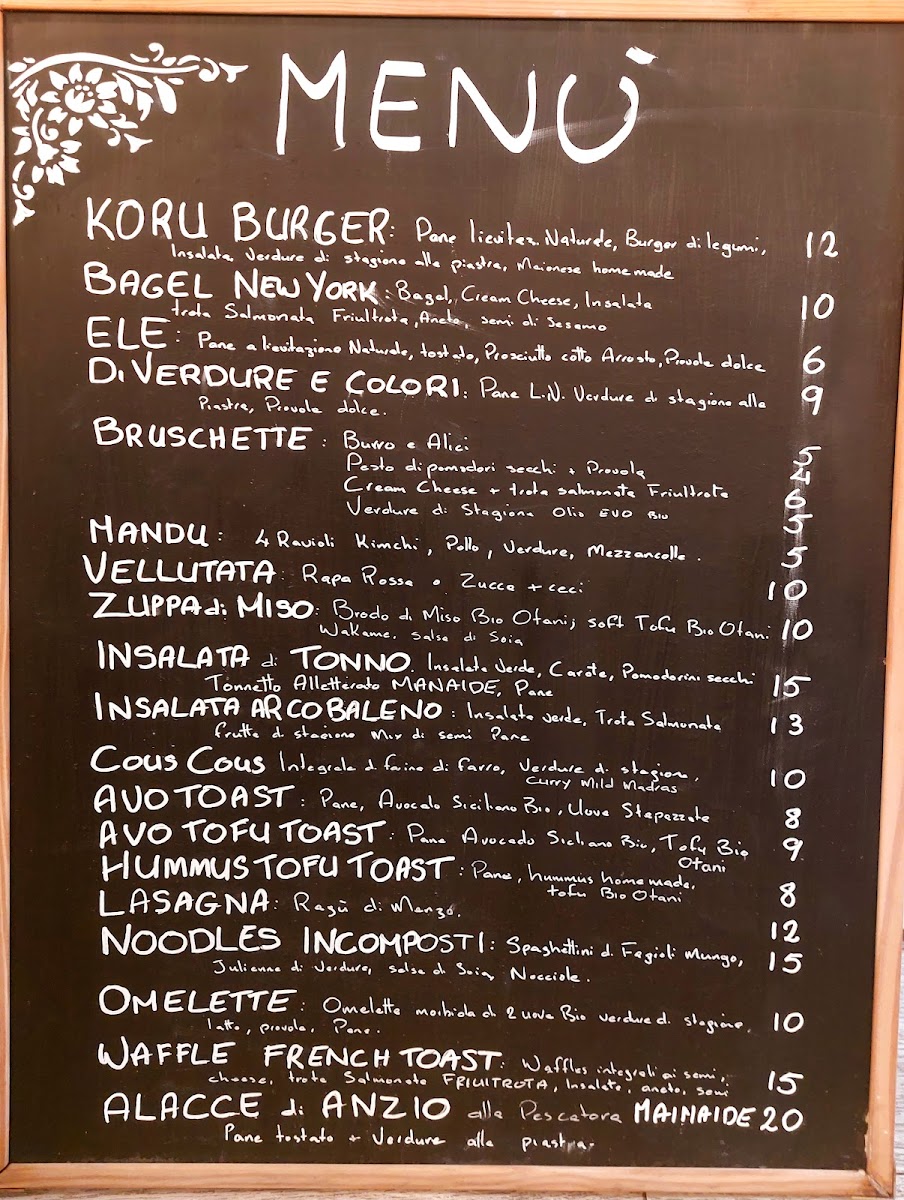 MENÙ
KORU BURGER: Pane lievitaz. Naturale, Burger di legumi, 12
Insalata, Verdure di stagione alla piastra, Maionese home made
BAGEL NEW YORK: Bagel, Cream Cheese, Insalata 10
trota Salmonata Friultrota, Aneto, semi di Sesamo
ELE: Pane a lievitazione Naturale, tostato, Prosciutto cotto Arrosto, Provola dolce 6
DI VERDURE E COLORI: Pane L.N. Verdure di stagione alla 9
Piastra, Provola dolce.
BRUSCHETTE: Burro e Alici 5
Pesto di pomodori secchi + Provola 4
Cream Cheese + trota salmonata Friultrota 6
Verdure di Stagione Olio EVO BIO 5
MANDU: 4 Ravioli Kimchi, Pollo, Verdure, Mezzancolle. 5
VELLUTATA: Rapa Rossa o Zucca + ceci 10
ZUPPA di MISO: Brodo di Miso Bio Otani, soft Tofu Bio Otani 10
Wakame, salsa di Soia
INSALATA di TONNO Insalata Verde, Carote, Pomodorini secchi 15
Tonnetto Alletterato MANAIDE, Pane
INSALATA ARCOBALENO: Insalata verde, Trota Salmonata 13
frutta di stagione Mix di semi Pane
COUS COUS Integrale di farina di farro, Verdure di stagione, 10
Curry Mild Madras
AVO TOAST: Pane, Avocado Siciliano Bio, Uova Strapazzate 8
AVO TOFU TOAST: Pane Avocado Siciliano Bio, Tofu Bio 9
Otani
HUMMUS TOFU TOAST: Pane, hummus home made, 8
tofu Bio Otani
LASAGNA: Ragù di Manzo. 12
NOODLES INCOMPOSTI: Spaghettini di Fagioli Mungo, 15
Julienne di Verdure, salsa di Soia, Nocciole.
OMELETTE: Omelette morbida di 2 uova Bio verdure di stagione, 10
latte, provola, Pane.
WAFFLE FRENCH TOAST: Waffles integrali ai semi, 15
cheese, trota Salmonata FRIULTROTA, Insalata, aneto, semi
ALACCE di ANZIO alla Pescatora MAINAIDE 20
Pane tostato + Verdure alla piastra.